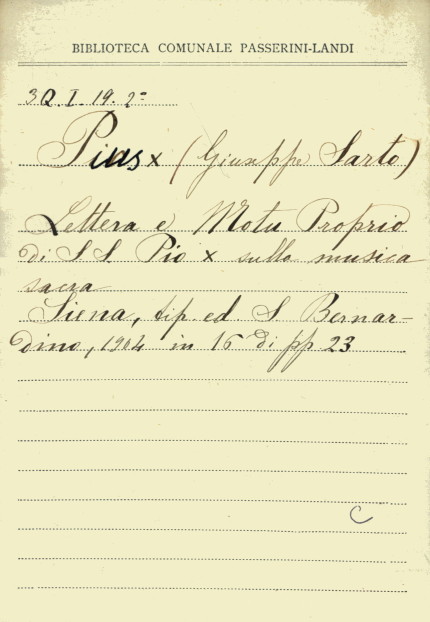 BIBLIOTECA COMUNALE PASSERINI-LANDI
3Q.I.19.2º
Pius X (Giuseppe Sarto)
Lettera e Motu Proprio
di S S. Pio X sulla musica
sacra
Siena, tip. ed. S. Bernar-
dino, 1904 in 16º di pp 23
C